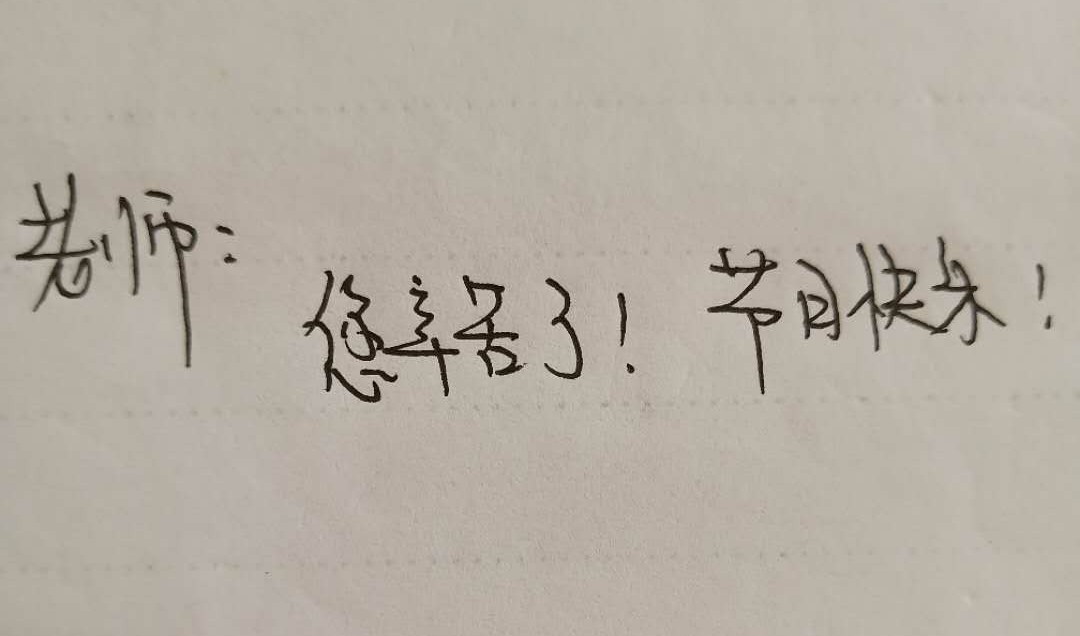 老师：
您辛苦了！节日快乐！